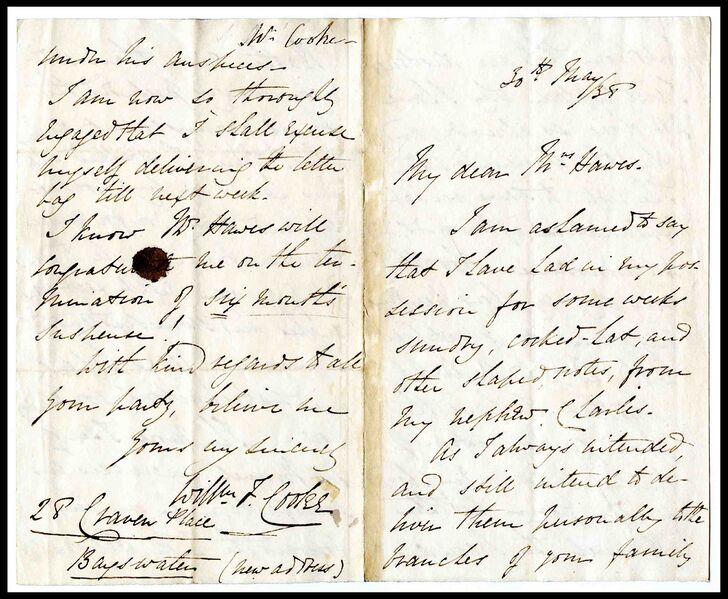 30th May
/38
My dear Mrs Hawes.
I am ashamed to say
that I have had in my pos
session for some weeks
sundry, cocked-hat, and
other shaped, notes, from
my nephew Charles.
As I always intended,
and still intend to de-
liver them personally to the
branches of your family
Mr Cooke-
under his auspices-
I am now so thoroughly
engaged that I shall excuse
myself delivering the letter
bag 'till next week.
I know Mr Hawes will
me on the ter-
mination of six month's
suspense!
With kind regards to all
your party, believe me
Yours very sincerely
Willm F. Cooke
28 Craven Place
Bayswater (new address)